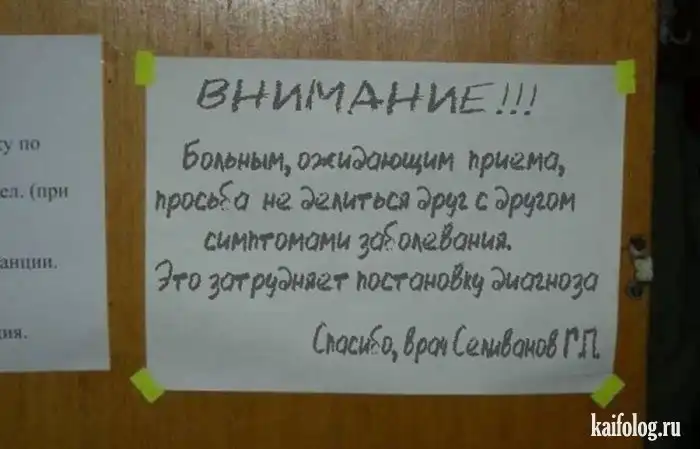 ВНИМАНИЕ!!!
Больным, ожидающим приема,
просьба не делиться друг с другом
симптомами заболевания.
Это затрудняет постановку диагноза
Спасибо, врач Селиванов Г.П.
у по
ел. (при
анции.
ия.
kaifolog.ru